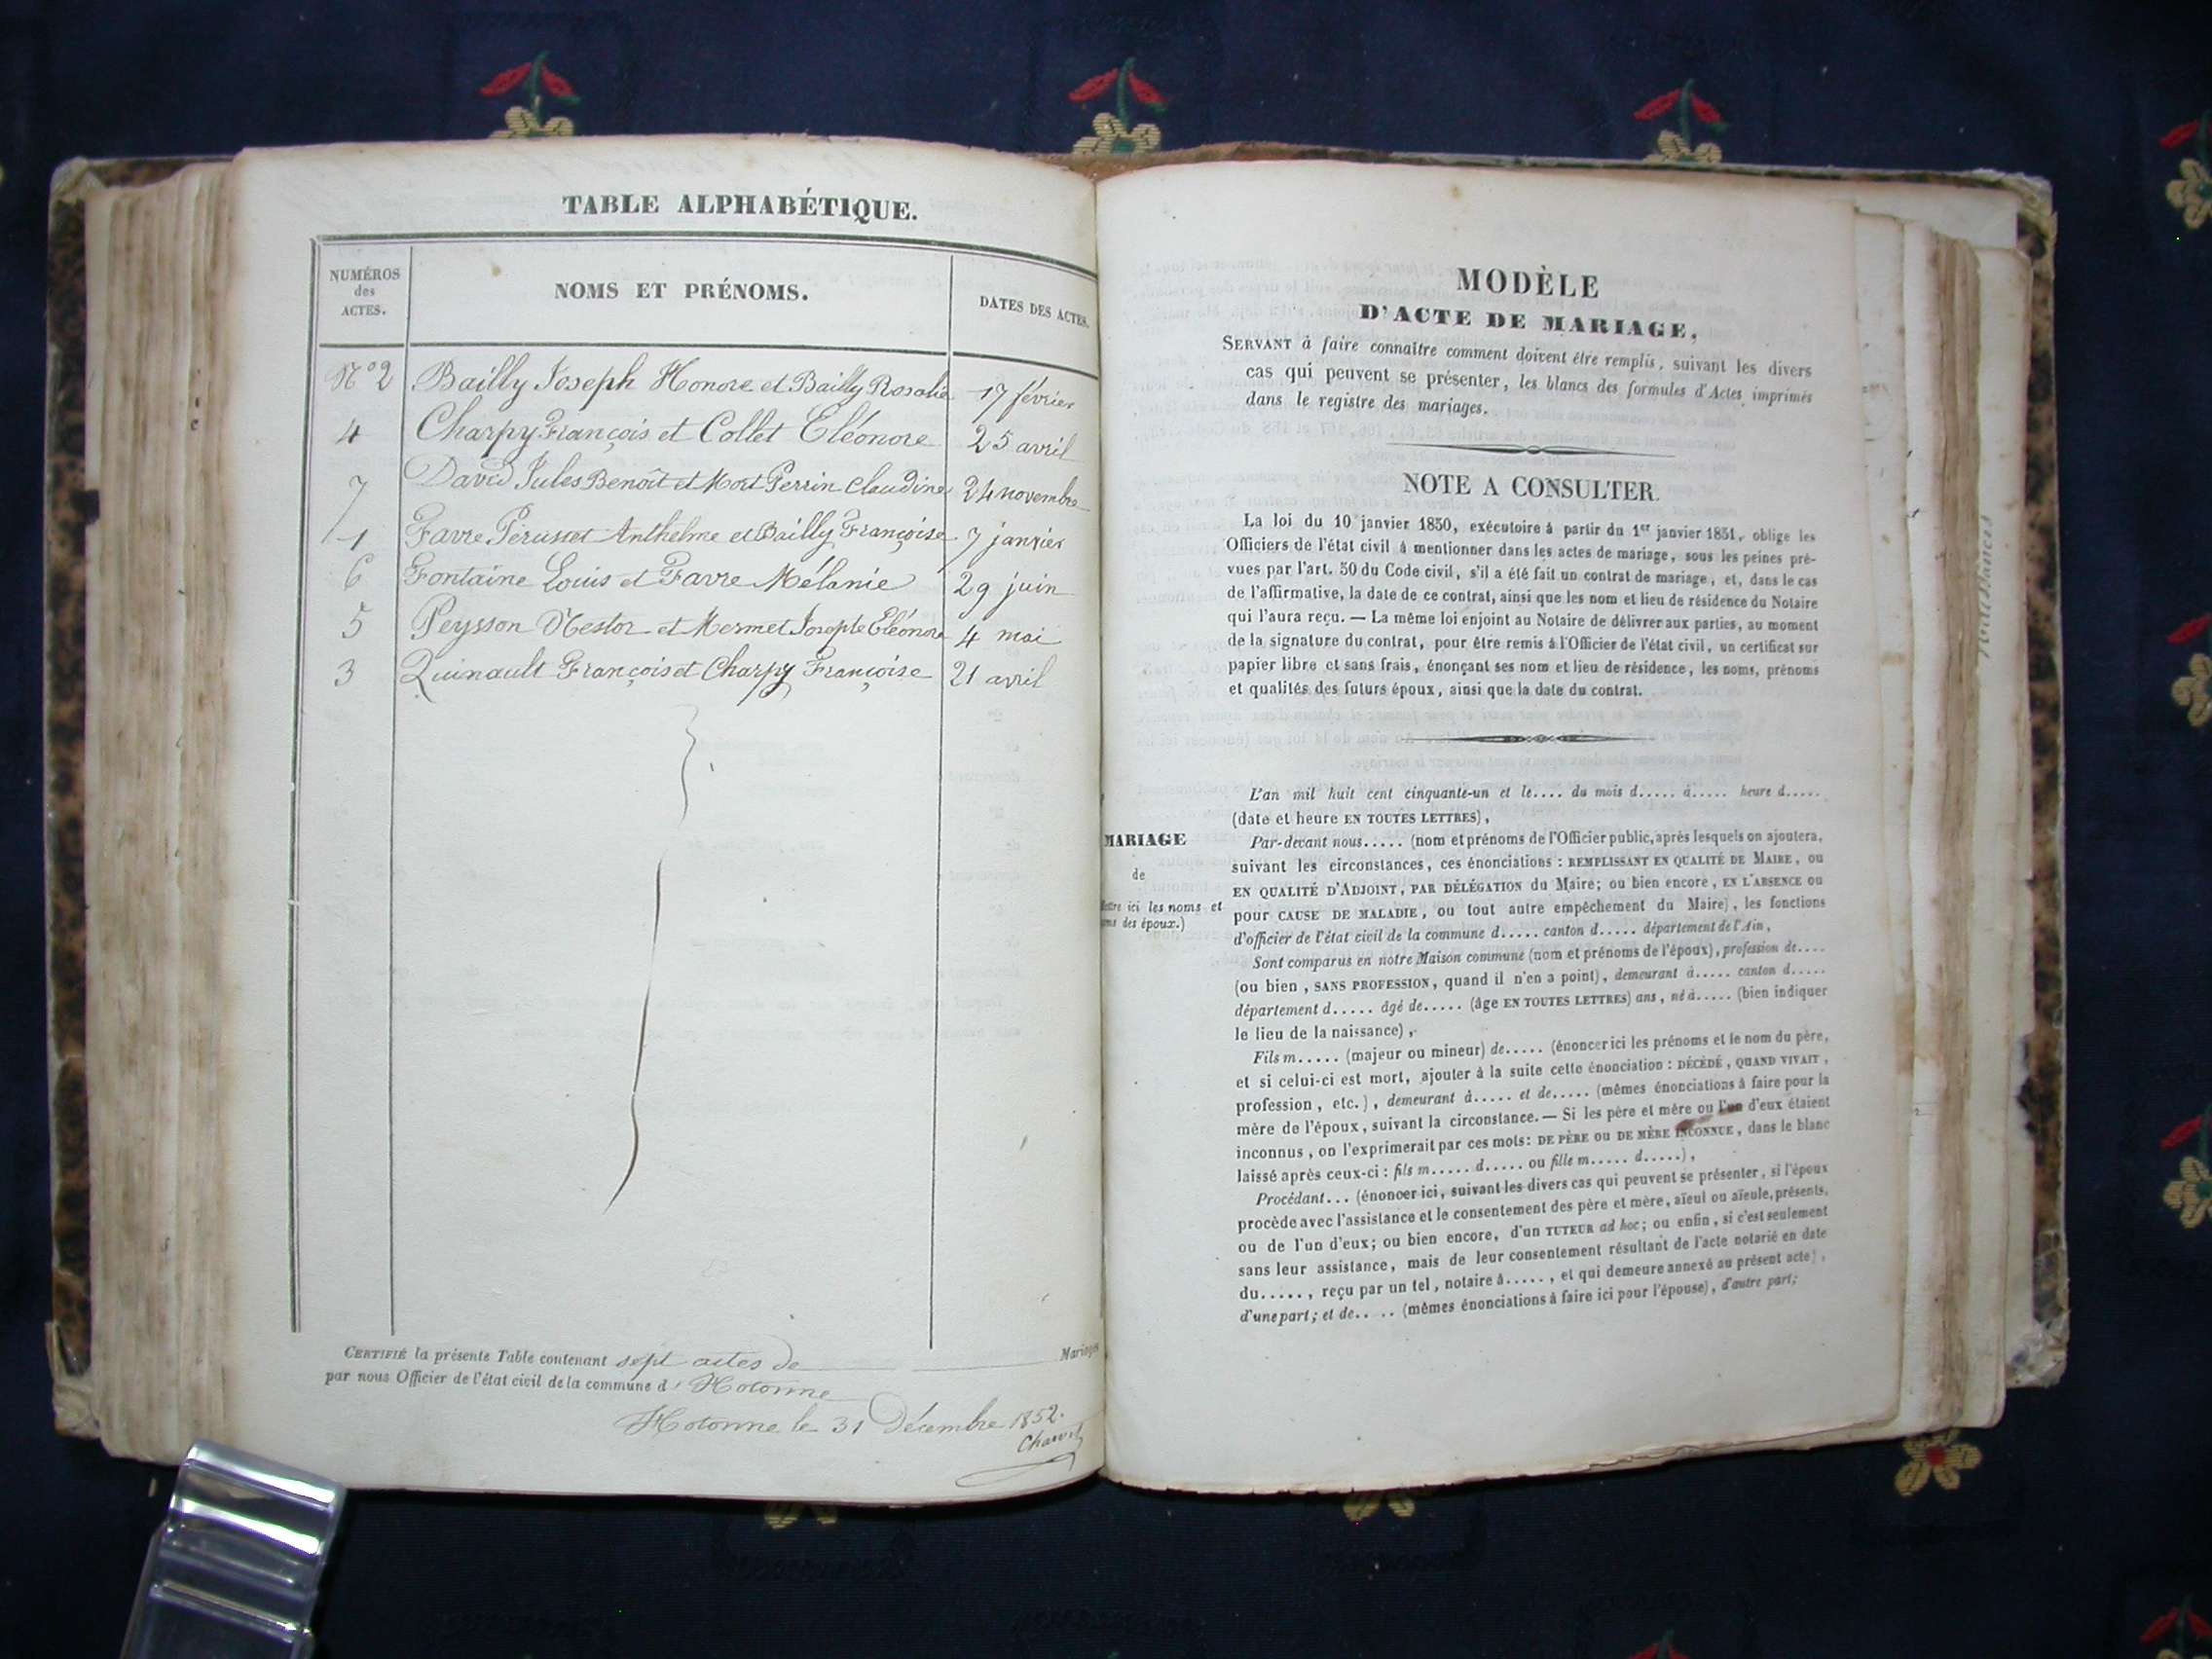 TABLE ALPHABÉTIQUE.
NUMÉROS
des
ACTES.
NOMS ET PRÉNOMS.
DATES DES ACTES.
N° 2 Bailly Joseph Honore et Bailly Rosalie 17 février
4 Charpy François et Collet Eléonore 25 avril
7 David Jules Benoît et Mort Perrin Claudine 24 novembre
1 Favre Anthelme et Bailly Françoise 7 janvier
6 Fontaine Louis et Favre Mélanie 29 juin
5 Peysson Nestor et Mermet Josephte Eléonore 4 mai
3 Quinault François et Charpy Françoise 21 avril
CERTIFIÉ la présente Table contenant sept actes de Mariages
par nous Officier de l'état civil de la commune d' Hotonne
Hotonne le 31 Décembre 1852.
MODÈLE
D'ACTE DE MARIAGE,
SERVANT à faire connaître comment doivent être remplis, suivant les divers
cas qui peuvent se présenter, les blancs des formules d'Actes imprimés
dans le registre des mariages.
NOTE A CONSULTER.
La loi du 10 janvier 1850, exécutoire à partir du 1er janvier 1851, oblige les
Officiers de l'état civil à mentionner dans les actes de mariage, sous les peines pré-
vues par l'art. 50 du Code civil, s'il a été fait un contrat de mariage, et, dans le cas
de l'affirmative, la date de ce contrat, ainsi que les nom et lieu de résidence du Notaire
qui l'aura reçu. — La même loi enjoint au Notaire de délivrer aux parties, au moment
de la signature du contrat, pour être remis à l'Officier de l'état civil, un certificat sur
papier libre et sans frais, énonçant ses nom et lieu de résidence, les noms, prénoms
et qualités des futurs époux, ainsi que la date du contrat.
MARIAGE
de
ici les noms et
des époux.)
L'an mil huit cent cinquante-un et le.... du mois d..... à..... heure d.....
(date et heure EN TOUTES LETTRES),
Par-devant nous..... (nom et prénoms de l'Officier public, après lesquels on ajoutera,
suivant les circonstances, ces énonciations : REMPLISSANT EN QUALITÉ DE MAIRE, ou
EN QUALITÉ D'ADJOINT, PAR DÉLÉGATION du Maire; ou bien encore, EN L'ABSENCE ou
pour CAUSE DE MALADIE, ou tout autre empêchement du Maire), les fonctions
d'officier de l'état civil de la commune d..... canton d..... département de l'Ain,
Sont comparus en notre Maison commune (nom et prénoms de l'époux), profession de....
(ou bien, SANS PROFESSION, quand il n'en a point), demeurant à..... canton d.....
département d..... âgé de..... (âge EN TOUTES LETTRES) ans, né à..... (bien indiquer
le lieu de la naissance),
Fils m..... (majeur ou mineur) de..... (énoncer ici les prénoms et le nom du père,
et si celui-ci est mort, ajouter à la suite cette énonciation : DÉCÉDÉ, QUAND VIVAIT,
profession, etc.), demeurant à..... et de..... (mêmes énonciations à faire pour la
mère de l'époux, suivant la circonstance. — Si les père et mère ou l'un d'eux étaient
inconnus, on l'exprimerait par ces mots: DE PÈRE ou DE MÈRE INCONNUE, dans le blanc
laissé après ceux-ci : fils m..... d..... ou fille m..... d.....),
Procédant... (énoncer ici, suivant les divers cas qui peuvent se présenter, si l'époux
procède avec l'assistance et le consentement des père et mère, aïeul ou aïeule, présents,
ou de l'un d'eux; ou bien encore, d'un TUTEUR ad hoc; ou enfin, si c'est seulement
sans leur assistance, mais de leur consentement résultant de l'acte notarié en date
du....., reçu par un tel, notaire à....., et qui demeure annexé au présent acte),
d'une part; et de..... (mêmes énonciations à faire ici pour l'épouse), d'autre part;